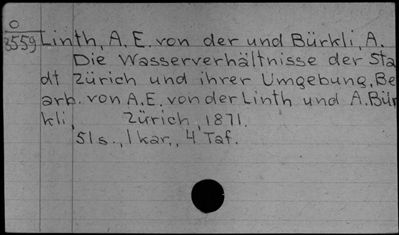 O
3559 Linth, A. E. von der und Bürkli, A.
Die Wasserverhältnisse der Sta
dt Zürich und ihrer Umgebung, Be
arb. von A.E. von der Linth und A. Bür
kli, Zürich, 1871.
51 s., 1 kar., 4 Taf.